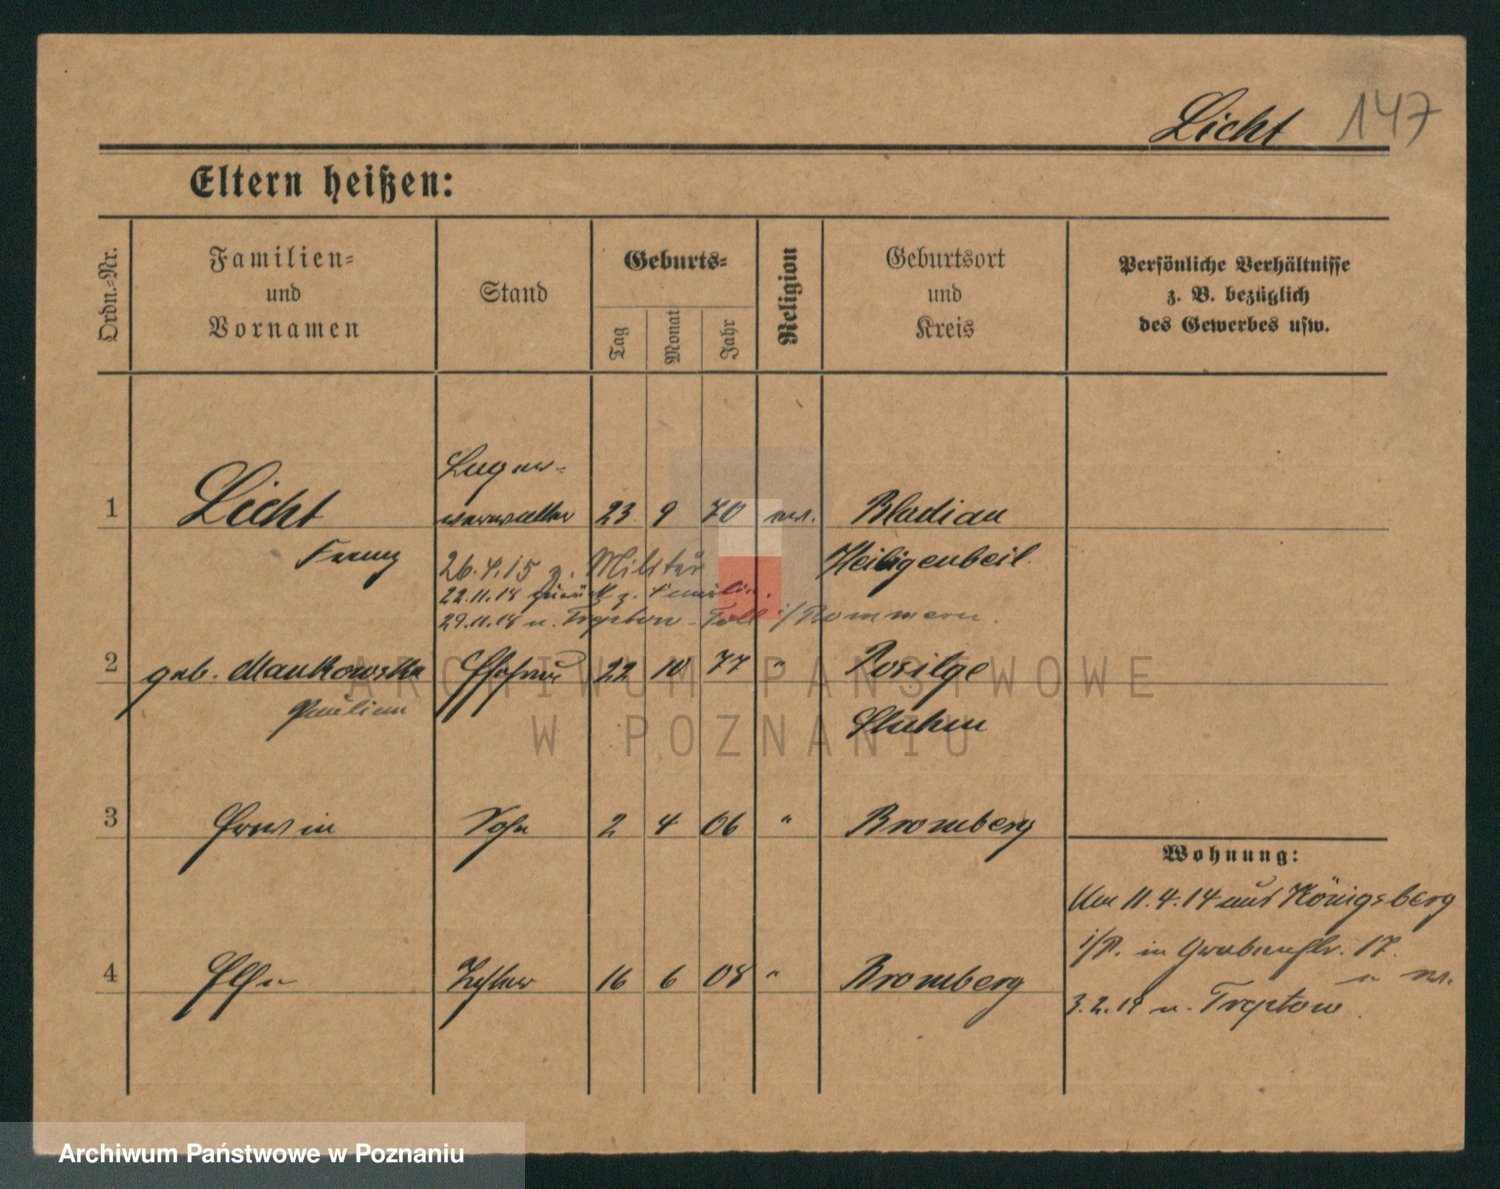 Licht 147
Eltern heißen:
Ordn.-Nr.
Familien-
und
Vornamen
Stand
Geburts-
Tag
Monat
Jahr
Religion
Geburtsort
und
Kreis
Persönliche Verhältnisse
z. B. bezüglich
des Gewerbes usw.
Lager-
1 Licht verwalter 23 9 70 ev. Bladiau
Franz Heiligenbeil.
26.4.15 z. Militär
22.11.18 zurück z. Familie.
29.11.18 n. Treptow-Toll i/Pommern.
2 geb. Mankowska Ehefrau 22 10 77 " Posilge
Pauline Stuhm
3 Erwin Sohn 2 4 06 " Bromberg
Wohnung:
Am 11.4.14 aus Königsberg
i/P. in Grabenstr. 17.
4 Else Tochter 16 6 08 " Bromberg
3.2.19 n. Treptow
ARCHIWUM PAŃSTWOWE
W POZNANIU
Archiwum Państwowe w Poznaniu